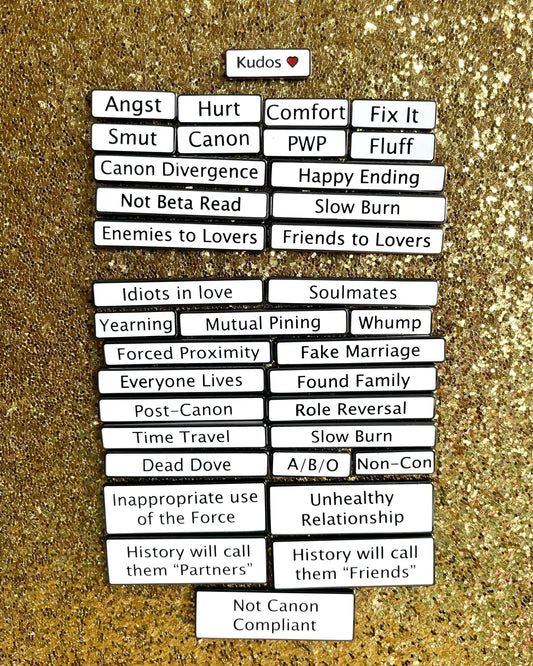 Kudos ❤
Angst Hurt Comfort Fix It
Smut Canon PWP Fluff
Canon Divergence Happy Ending
Not Beta Read Slow Burn
Enemies to Lovers Friends to Lovers
Idiots in love Soulmates
Yearning Mutual Pining Whump
Forced Proximity Fake Marriage
Everyone Lives Found Family
Post-Canon Role Reversal
Time Travel Slow Burn
Dead Dove A/B/O Non-Con
Inappropriate use
of the Force
Unhealthy
Relationship
History will call
them “Partners”
History will call
them “Friends”
Not Canon
Compliant